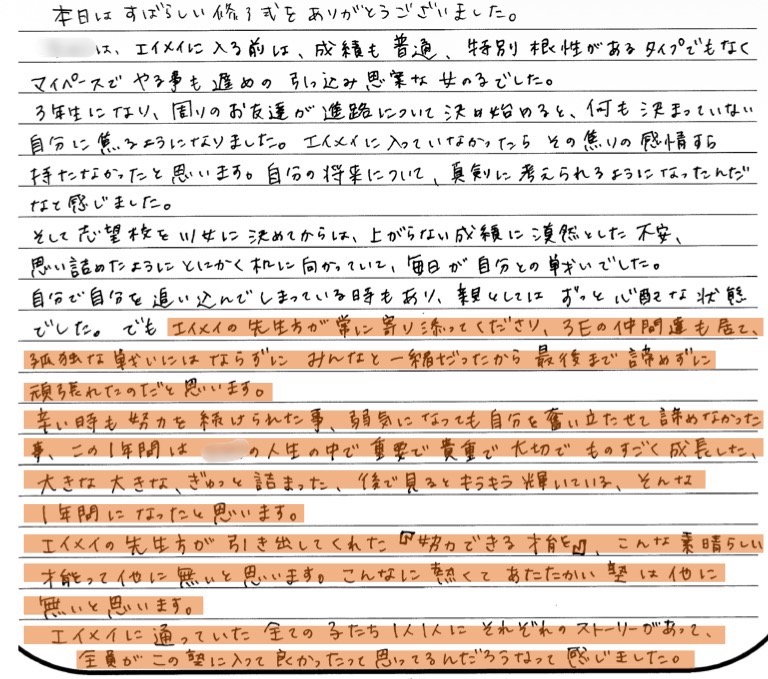 本日はすばらしい修了式をありがとうございました。
は、エイメイに入る前は、成績も普通、特別根性があるタイプでもなく
マイペースでやる事も遅めの引っ込み思案な女の子でした。
3年生になり、周りのお友達が進路について決め始めると、何も決まっていない
自分に焦るようになりました。エイメイに入っていなかったらその焦りの感情すら
持たなかったと思います。自分の将来について、真剣に考えられるようになったんだ
なと感じました。
そして志望校を川女に決めてからは、上がらない成績に漠然とした不安、
思い詰めたようにとにかく机に向かっていて、毎日が自分との戦いでした。
自分で自分を追い込んでしまっている時もあり、親としてはずっと心配な状態
でした。でもエイメイの先生方が常に寄り添ってくださり、3Eの仲間達も居て、
孤独な戦いにはならずにみんなと一緒だったから最後まで諦めずに
頑張れたのだと思います。
辛い時も努力を続けられた事、弱気になっても自分を奮い立たせて諦めなかった
事、この1年間は の人生の中で重要で貴重で大切でものすごく成長した、
大きな大きな、ぎゅっと詰まった、後で見るとキラキラ輝いている、そんな
1年間になったと思います。
エイメイの先生方が引き出してくれた『努力できる才能』、こんな素晴らしい
才能って他に無いと思います。こんなに熱くてあたたかい塾は他に
無いと思います。
エイメイに通っていた全ての子たち1人1人にそれぞれのストーリーがあって、
全員がこの塾に入って良かったって思ってるんだろうなって感じました。